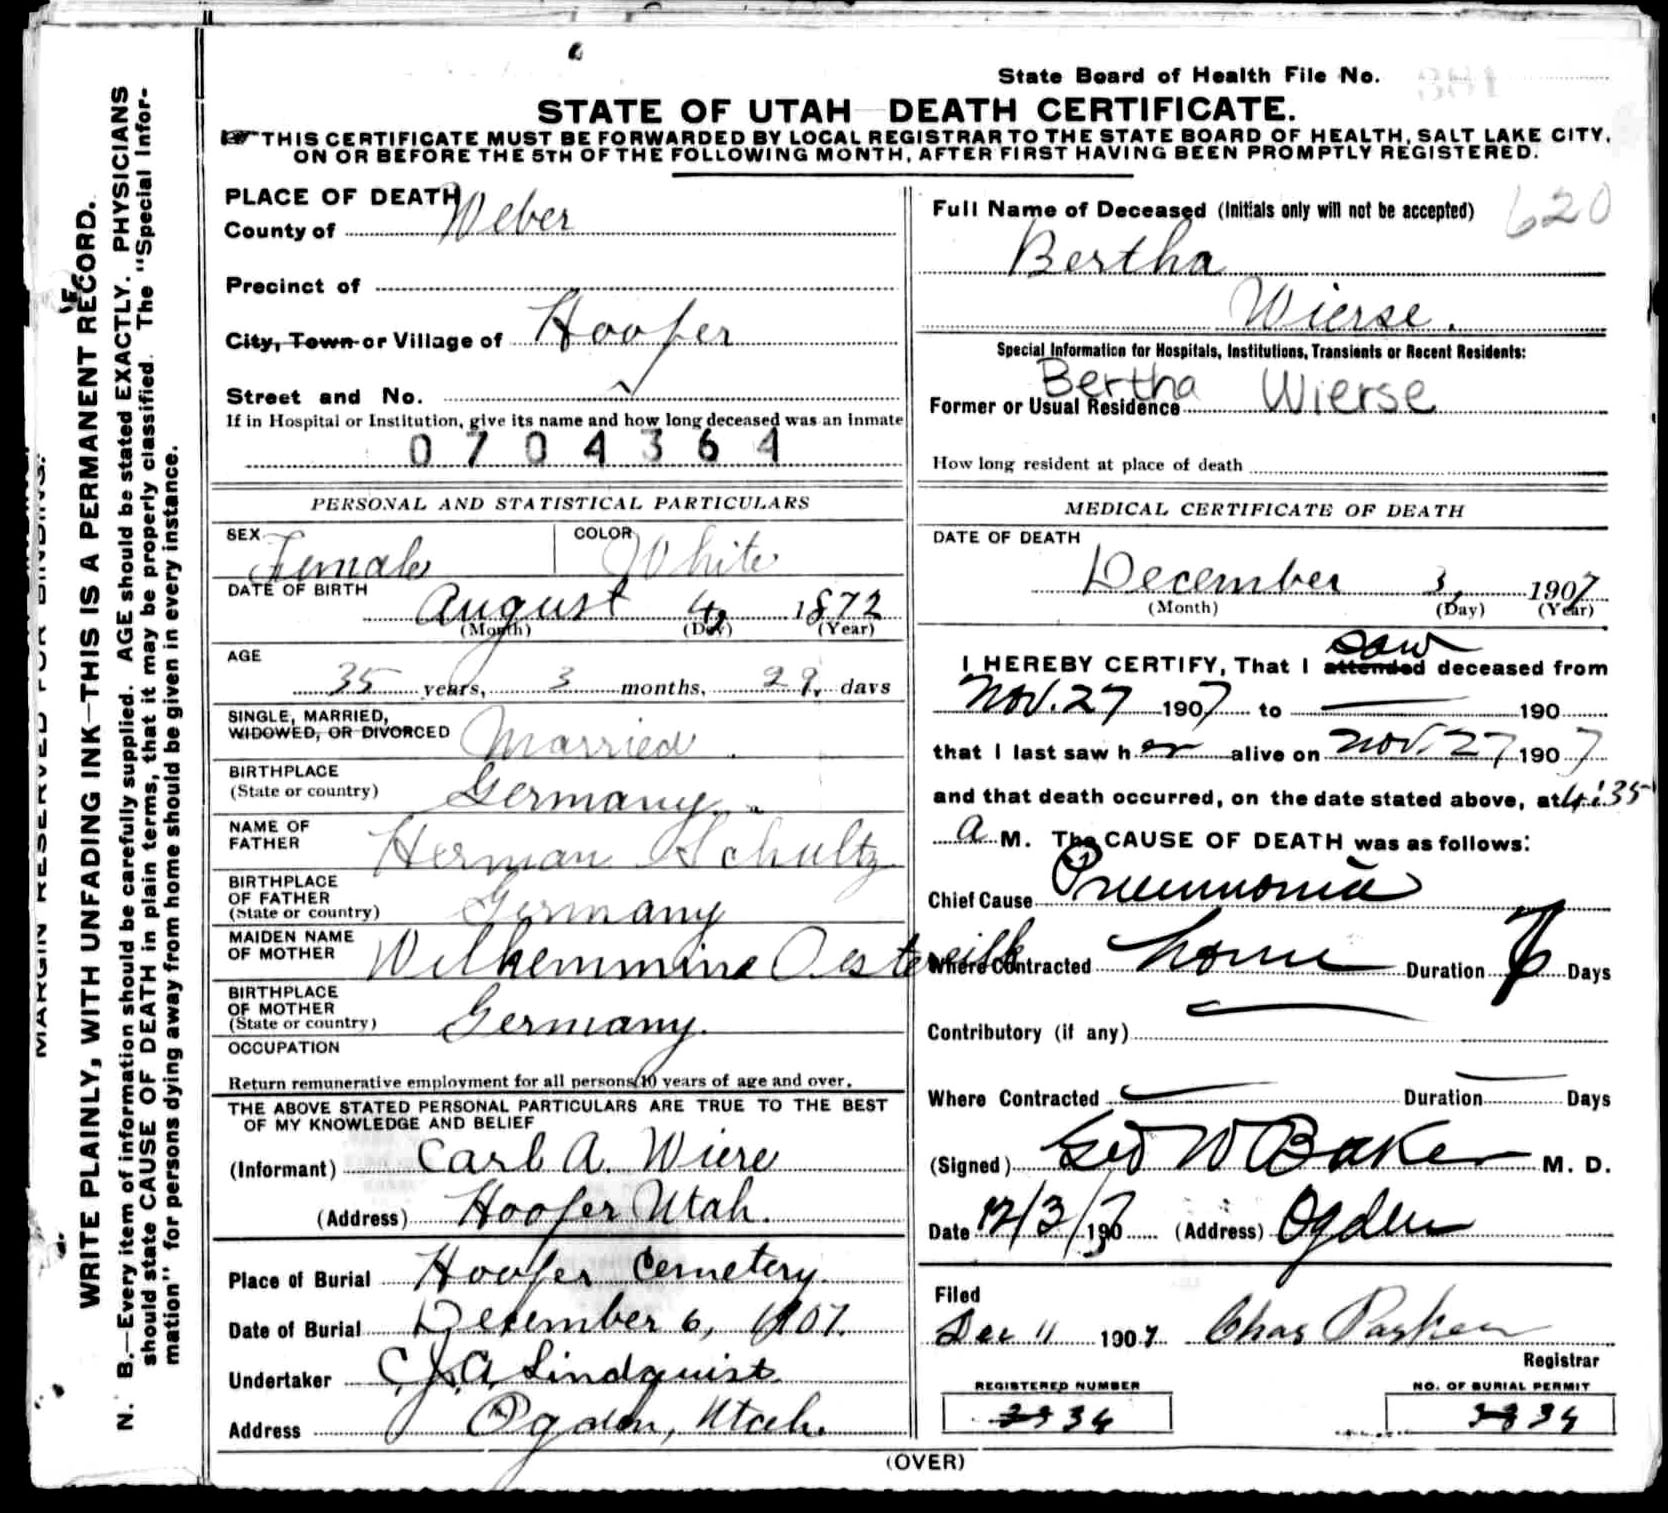 State Board of Health File No.
STATE OF UTAH—DEATH CERTIFICATE.
THIS CERTIFICATE MUST BE FORWARDED BY LOCAL REGISTRAR TO THE STATE BOARD OF HEALTH, SALT LAKE CITY,
ON OR BEFORE THE 5TH OF THE FOLLOWING MONTH, AFTER FIRST HAVING BEEN PROMPTLY REGISTERED.
MARGIN RESERVED FOR BINDING.
WRITE PLAINLY, WITH UNFADING INK—THIS IS A PERMANENT RECORD.
N. B.—Every item of information should be carefully supplied. AGE should be stated EXACTLY. PHYSICIANS
should state CAUSE OF DEATH in plain terms, that it may be properly classified. The "Special Infor-
mation" for persons dying away from home should be given in every instance.
PLACE OF DEATH
County of Weber
Precinct of
City, Town or Village of Hooper
Street and No.
If in Hospital or Institution, give its name and how long deceased was an inmate
0704364
PERSONAL AND STATISTICAL PARTICULARS
SEX Female COLOR White
DATE OF BIRTH
August 4, 1872
(Month) (Day) (Year)
AGE
35 years, 3 months, 29, days
SINGLE, MARRIED,
WIDOWED, OR DIVORCED Married
BIRTHPLACE
(State or country) Germany.
NAME OF
FATHER Herman Schultz
BIRTHPLACE
OF FATHER
(State or country) Germany
MAIDEN NAME
OF MOTHER Wilhemmine
BIRTHPLACE
OF MOTHER
(State or country) Germany.
OCCUPATION
Return remunerative employment for all persons 10 years of age and over.
THE ABOVE STATED PERSONAL PARTICULARS ARE TRUE TO THE BEST
OF MY KNOWLEDGE AND BELIEF
(Informant) Carl A. Wiere
(Address) Hooper Utah.
Place of Burial Hooper Cemetery.
Date of Burial December 6, 1907.
Undertaker C.J.A. Lindquist
Address Ogden, Utah.
Full Name of Deceased (Initials only will not be accepted) 620
Bertha
Wierse.
Special Information for Hospitals, Institutions, Transients or Recent Residents:
Bertha Wierse
Former or Usual Residence
How long resident at place of death
MEDICAL CERTIFICATE OF DEATH
DATE OF DEATH
December 3, 1907
(Month) (Day) (Year)
saw
I HEREBY CERTIFY, That I attended deceased from
Nov. 27 1907 to — 190
that I last saw her alive on Nov. 27 1907
and that death occurred, on the date stated above, at 4:35
a M. The CAUSE OF DEATH was as follows:
Chief Cause Pneumonia
Where Contracted home Duration Days
Contributory (if any)
Where Contracted — Duration — Days
(Signed) Geo W Baker M. D.
Date 12/3/1907 (Address) Ogden
Filed
Dec 11 1907 Chas Parker
Registrar
REGISTERED NUMBER
34
NO. OF BURIAL PERMIT
34
(OVER)